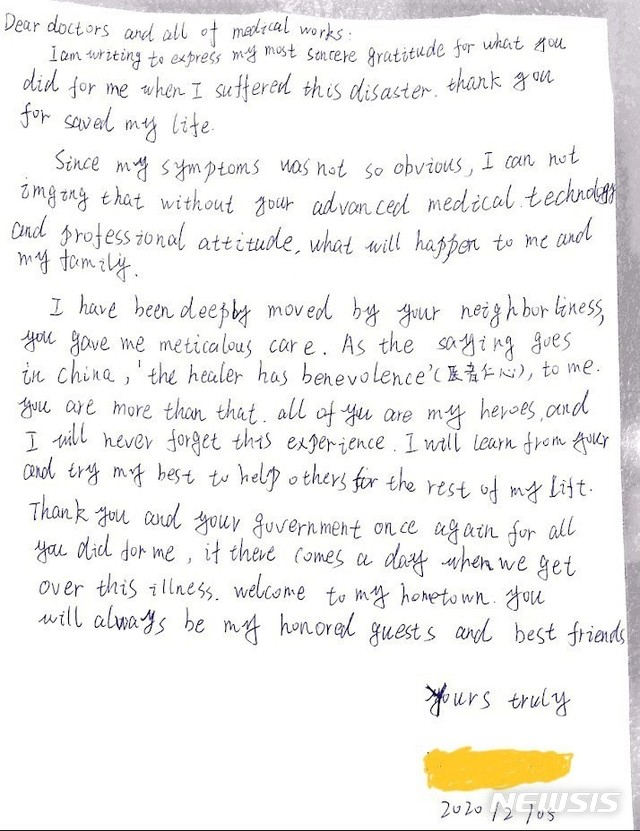 Dear doctors and all of medical works:
I am writing to express my most sincere gratitude for what you
did for me when I suffered this disaster. thank you
for saved my life.
Since my symptoms was not so obvious, I can not
imging that without your advanced medical technology
and professional attitude, what will happen to me and
my family.
I have been deeply moved by your neighborliness,
you gave me meticalous care. As the saying goes
in China, 'the healer has benevolence'(医者仁心), to me.
you are more than that. all of you are my heroes, and
I will never forget this experience. I will learn from your
and try my best to help others for the rest of my lift.
Thank you and your guvernment once again for all
you did for me, if there comes a day when we get
over this illness. welcome to my hometown. you
will always be my honored guests and best friends
Yours truly
NEWSIS
2020/2/05